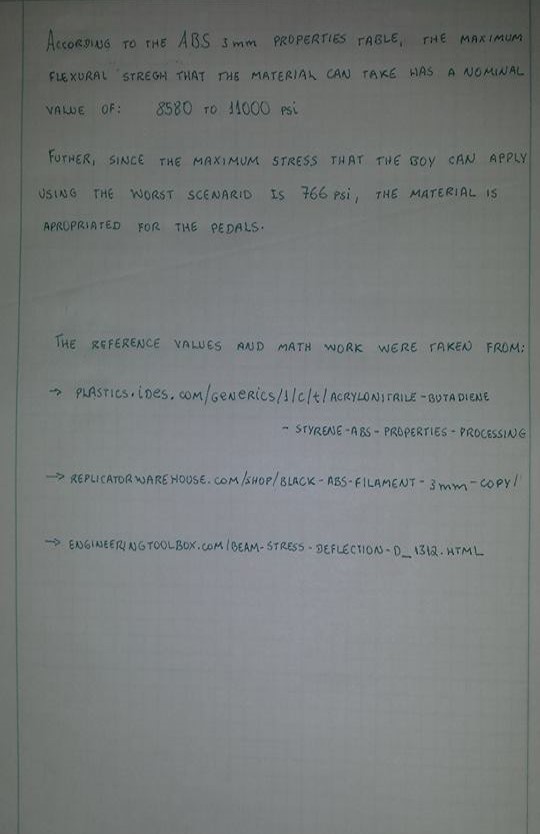 ACCORDING TO THE ABS 3mm PROPERTIES TABLE, THE MAXIMUM
FLEXURAL STREGH THAT THE MATERIAL CAN TAKE HAS A NOMINAL
VALUE OF: 8580 TO 11000 psi
FUTHER, SINCE THE MAXIMUM STRESS THAT THE BOY CAN APPLY
USING THE WORST SCENARIO IS 766 psi, THE MATERIAL IS
APROPRIATED FOR THE PEDALS.
THE REFERENCE VALUES AND MATH WORK WERE TAKEN FROM:
→ PLASTICS.ides.com/GENERICS/1/c/t/ACRYLONITRILE-BUTADIENE
- STYRENE-ABS-PROPERTIES-PROCESSING
→ REPLICATORWAREHOUSE.COM/SHOP/BLACK-ABS-FILAMENT-3mm-COPY/
→ ENGINEERINGTOOLBOX.COM/BEAM-STRESS-DEFLECTION-D_1312.HTML